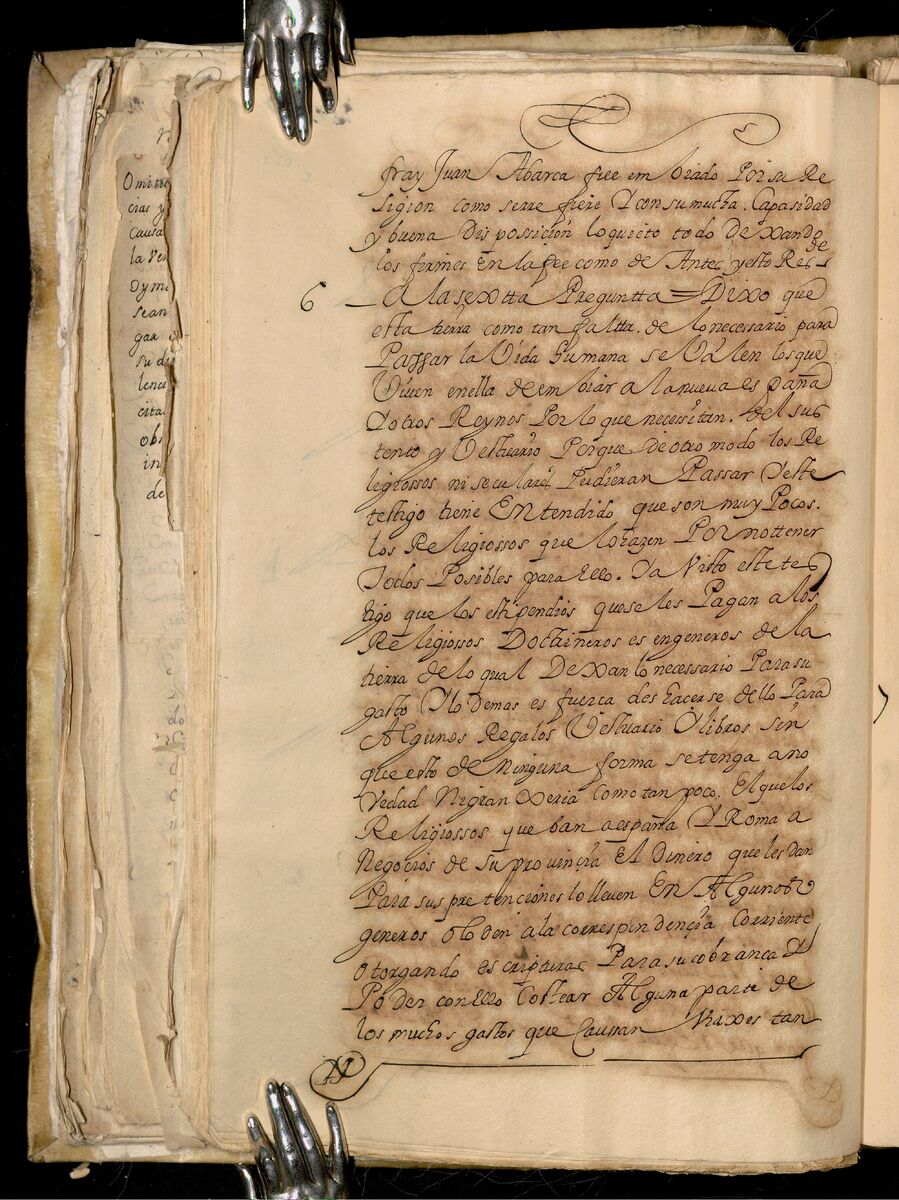 fray Juan Abarca fue em biado Por su Re
ligion como serre fiere Y con su mucha. Capasidad
y buena Dis posicion lo quieto todo de xando
los firmes En la fee como de Antes y esto Res de
6 — A la sextta Preguntta = Dixo que
esta tierra como tan faltta. de lo necessario para
Passar la Vida humana se Valen los que
Viven en ella de em biar a la nueva es paña
Y otros Reynos Por lo que necessitan. del sus
tento y Vestuario Porque de otro modo los Re
ligiossos ni seculares Pudieran Passar Y este
testigo tiene En tendido que son muy Pocos.
los Religiossos que lo hazen Por no ttener
todos Posibles para ello. Ya Visto este tes
tigo que los estipendios que se les Pagan a los
Religiossos Doctrineros es en generos de la
tierra de lo qual Dexan lo necessario Para su
gasto Y lo Demas es fuerca des hacerse dello Para
Algunos Regalos Vestuario Y libros. sin
que esto de Ninguna forma se tenga a no
Vedad Ni gran xeria Como tan poco. El que los
Religiossos que ban a españa Y Roma a
Negocios de su provincia El dinero que les dan
Para sus pre tenciones lo lleven En Algunos
generos o lo den a la correspindençia Corriente
otorgando es cripturas Para su cobranca Y
Po der con ello Costear Alguna parte de
los muchos gastos que Caussan Viaxes tan
Omitie
cias y
Causa
la Ven
sean
gar
su di
lenci
cita
obs
in
de